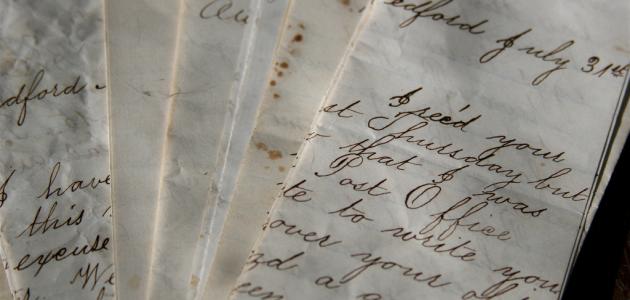 edford July 31st
I rec'd your
st Thursday but
r that I was
Post Office
te to write you
over your
nd a
een
Au
dford -
I have
this
excuse
We